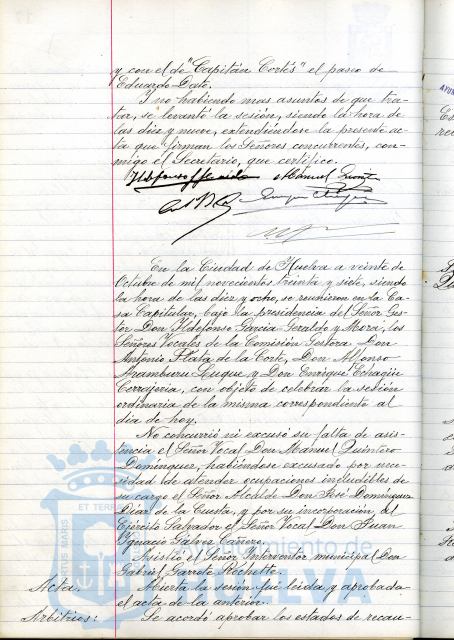 y con el de "Capitán Cortés" el paseo de
Eduardo Dato.
Y no habiendo mas asuntos de que tra-
tar, se levantó la sesión, siendo la hora de
las diez y nueve, extendiéndose la presente ac-
ta que firman los Señores concurrentes, con-
migo el Secretario, que certifico.
En la Ciudad de Huelva a veinte de
Octubre de mil novecientos treinta y siete, siendo
la hora de las diez y ocho, se reunieron en la Ca-
sa Capitular, bajo la presidencia del Señor Ges-
tor Don Ildefonso Garcia Geraldo y Mora, los
Señores Vocales de la Comisión Gestora Don
Antonio Plata de la Corte, Don Alfonso
Aramburu Luque y Don Enrique Echagüe
Cerrejeria, con objeto de celebrar la sesión
ordinaria de la misma correspondiente al
dia de hoy.
No concurrió ni excusó su falta de asis-
tencia el Señor Vocal Don Manuel Quintero
Dominguez, habiéndose excusado por nece-
sidad de atender ocupaciones ineludibles de
su cargo el Señor Alcalde Don José Dominguez
Diaz de la Cuesta, y por su incorporación al
Ejército Salvador el Señor Vocal Don Juan
Ygnacio Gálvez Cañero.
Asistió el Señor Interventor municipal Don
Gabriel Garrote
Acta. Abierta la sesión fué leida y aprobada
el acta de la anterior.
Arbitrios: Se acordó aprobar los estados de recau-